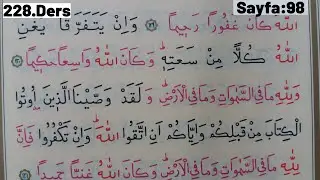 228.Ders
Sayfa:98
اللّٰهَ كَانَ غَفُورًا رَحِيمًا ﴿١٢٩﴾ وَاِنْ يَتَفَرَّقَا يُغْنِ
اللّٰهُ كُلًّا مِنْ سَعَتِهٖ وَكَانَ اللّٰهُ وَاسِعًا حَكِيمًا ﴿١٣٠﴾
وَلِلّٰهِ مَا فِي السَّمٰوَاتِ وَمَا فِي الْاَرْضِ وَلَقَدْ وَصَّيْنَا الَّذِينَ اُوتُوا
الْكِتَابَ مِنْ قَبْلِكُمْ وَاِيَّاكُمْ اَنِ اتَّقُوا اللّٰهَ وَاِنْ تَكْفُرُوا فَاِنَّ
لِلّٰهِ مَا فِي السَّمٰوَاتِ وَمَا فِي الْاَرْضِ وَكَانَ اللّٰهُ غَنِيًّا حَمِيدًا